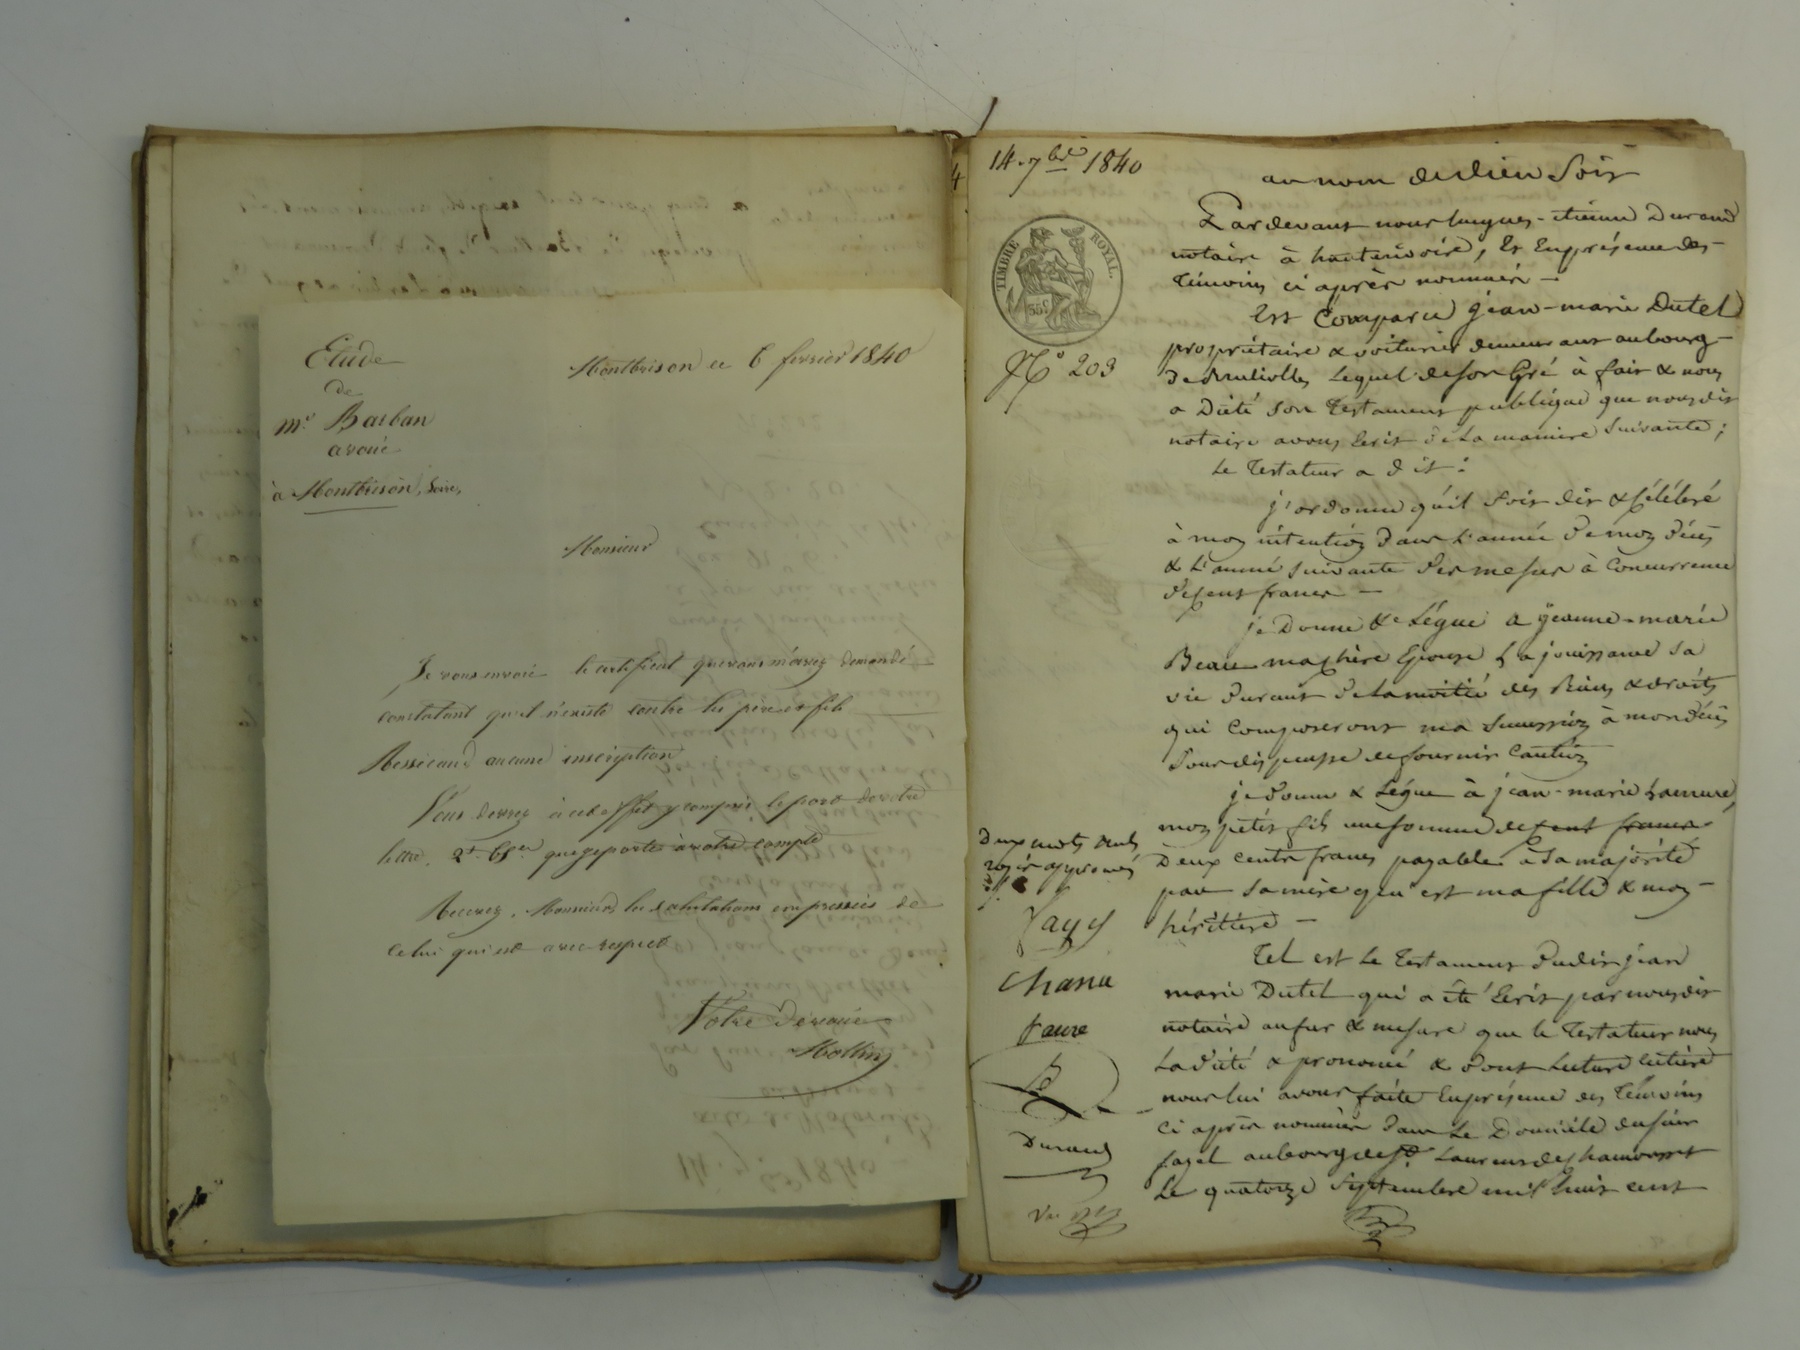 Etude
de
Me Barban
avoué
à Montbrison, Loire,
Montbrison ce 6 fevrier 1840
Monsieur
Je vous envoie le certificat que vous m'avez demandé
constatant qu'il n'existe contre les père et fils
aucune inscription
Vous devez à cet effet y compris le port de votre
lettre, que je porte à votre compte
Recevez, Monsieur, les salutations empressées de
celui qui est avec respect
Votre dévoué
14 7bre 1840
TIMBRE ROYAL.
35c
No 203
au nom de dieu Soit
Pardevant nous Durand
notaire à hauterivoire, Et En présence des
témoins ci après nommés —
Est Comparu jean-marie Dutel
propriétaire & voiturier demeurant au bourg
de Brullioles, Lequel de son Gré à fait & nous
a Dicté son Testament publique que nous dit
notaire avons Ecrit de La maniere Suivante ;
Le Testateur a dit :
j'ordonne qu'il soit dit & Célébré
à mon intention dans L'année de mon décès
& L'année suivante des messes à Concurrence
de Cent francs —
je Donne & Légue a jeanne-marie
Beau ma chère Epouse La jouissance sa
vie durant de la moitié des Biens & droits
qui Composeront ma succession à mon décès
Sous dispense de fournir Caution
je donne & Légue à jean-marie
mon petit fils une somme de cent francs
Deux cents francs payable à sa majorité
par sa mère qui est ma fille & mon
héritière —
Tel est Le Testament dudit jean
marie Dutel qui a été Ecrit par nous dit
notaire au fur & mesure que le Testateur nous
La dicté & prononcé & dont Lecture Entière
nous lui avons faite En présence des Témoins
Ci après nommés dans Le Domicile du sieur
fayel au bourg de St Laurent de chamousset
Le quatorze Septembre mil huit cent
Deux mots
rayés approuvés
Fayy
Chana
faure
Durand